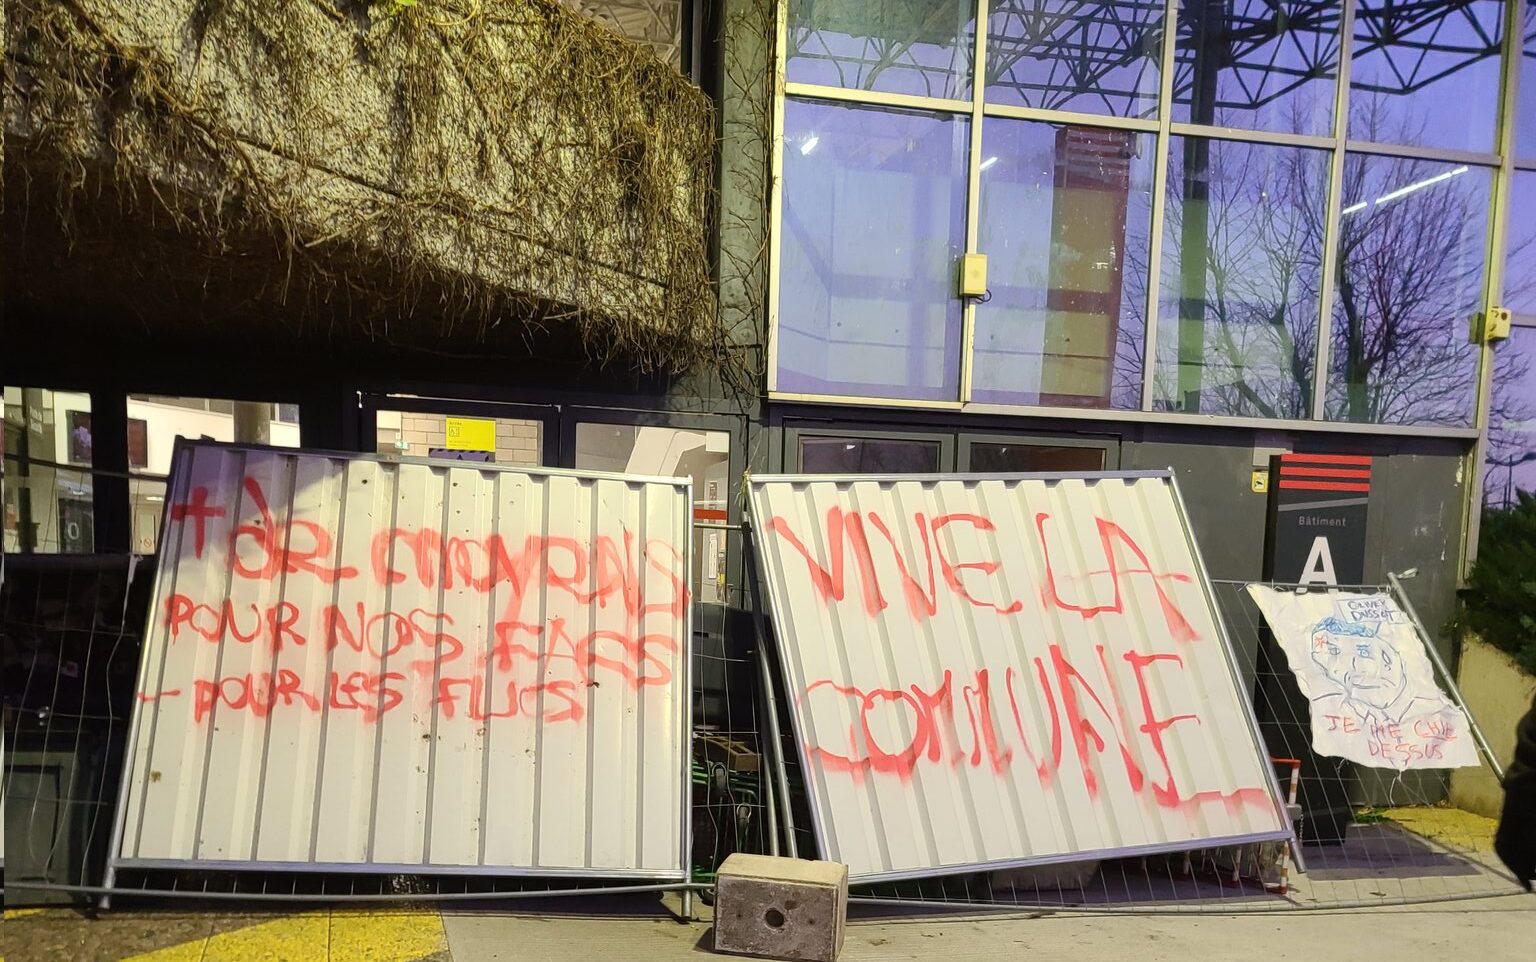 + DE MOYENS
POUR NOS FACS
- POUR LES FLICS
VIVE LA
COMMUNE
Bâtiment
A
OLIVIER
DUSSOPT
JE ME CHIE
DESSUS